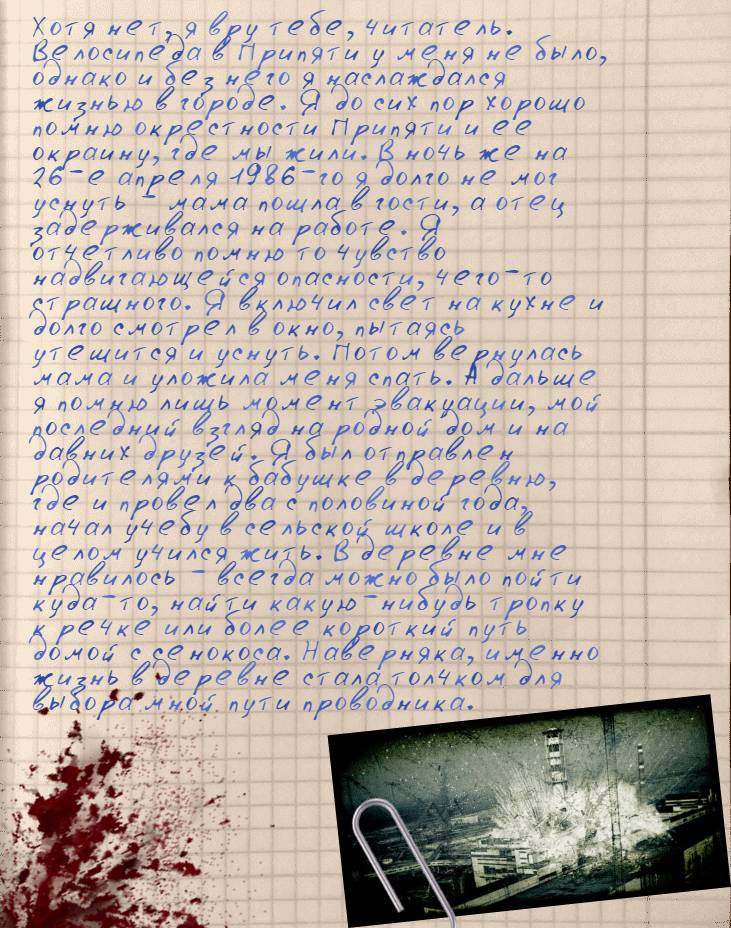 Хотя нет, я вру тебе, читатель.
Велосипеда в Припяти у меня не было,
однако и без него я наслаждался
жизнью в городе. Я до сих пор хорошо
помню окрестности Припяти и ее
окраину, где мы жили. В ночь же на
26-е апреля 1986-го я долго не мог
уснуть - мама пошла в гости, а отец
задерживался на работе. Я
отчетливо помню то чувство
надвигающейся опасности, чего-то
страшного. Я включил свет на кухне и
долго смотрел в окно, пытаясь
утешится и уснуть. Потом вернулась
мама и уложила меня спать. А дальше
я помню лишь момент эвакуации, мой
последний взгляд на родной дом и на
давних друзей. Я был отправлен
родителями к бабушке в деревню,
где и провел два с половиной года,
начал учебу в сельской школе и в
целом учился жить. В деревне мне
нравилось - всегда можно было пойти
куда-то, найти какую-нибудь тропку
к речке или более короткий путь
домой с сенокоса. Наверняка, именно
жизнь в деревне стала толчком для
выбора мной пути проводника.